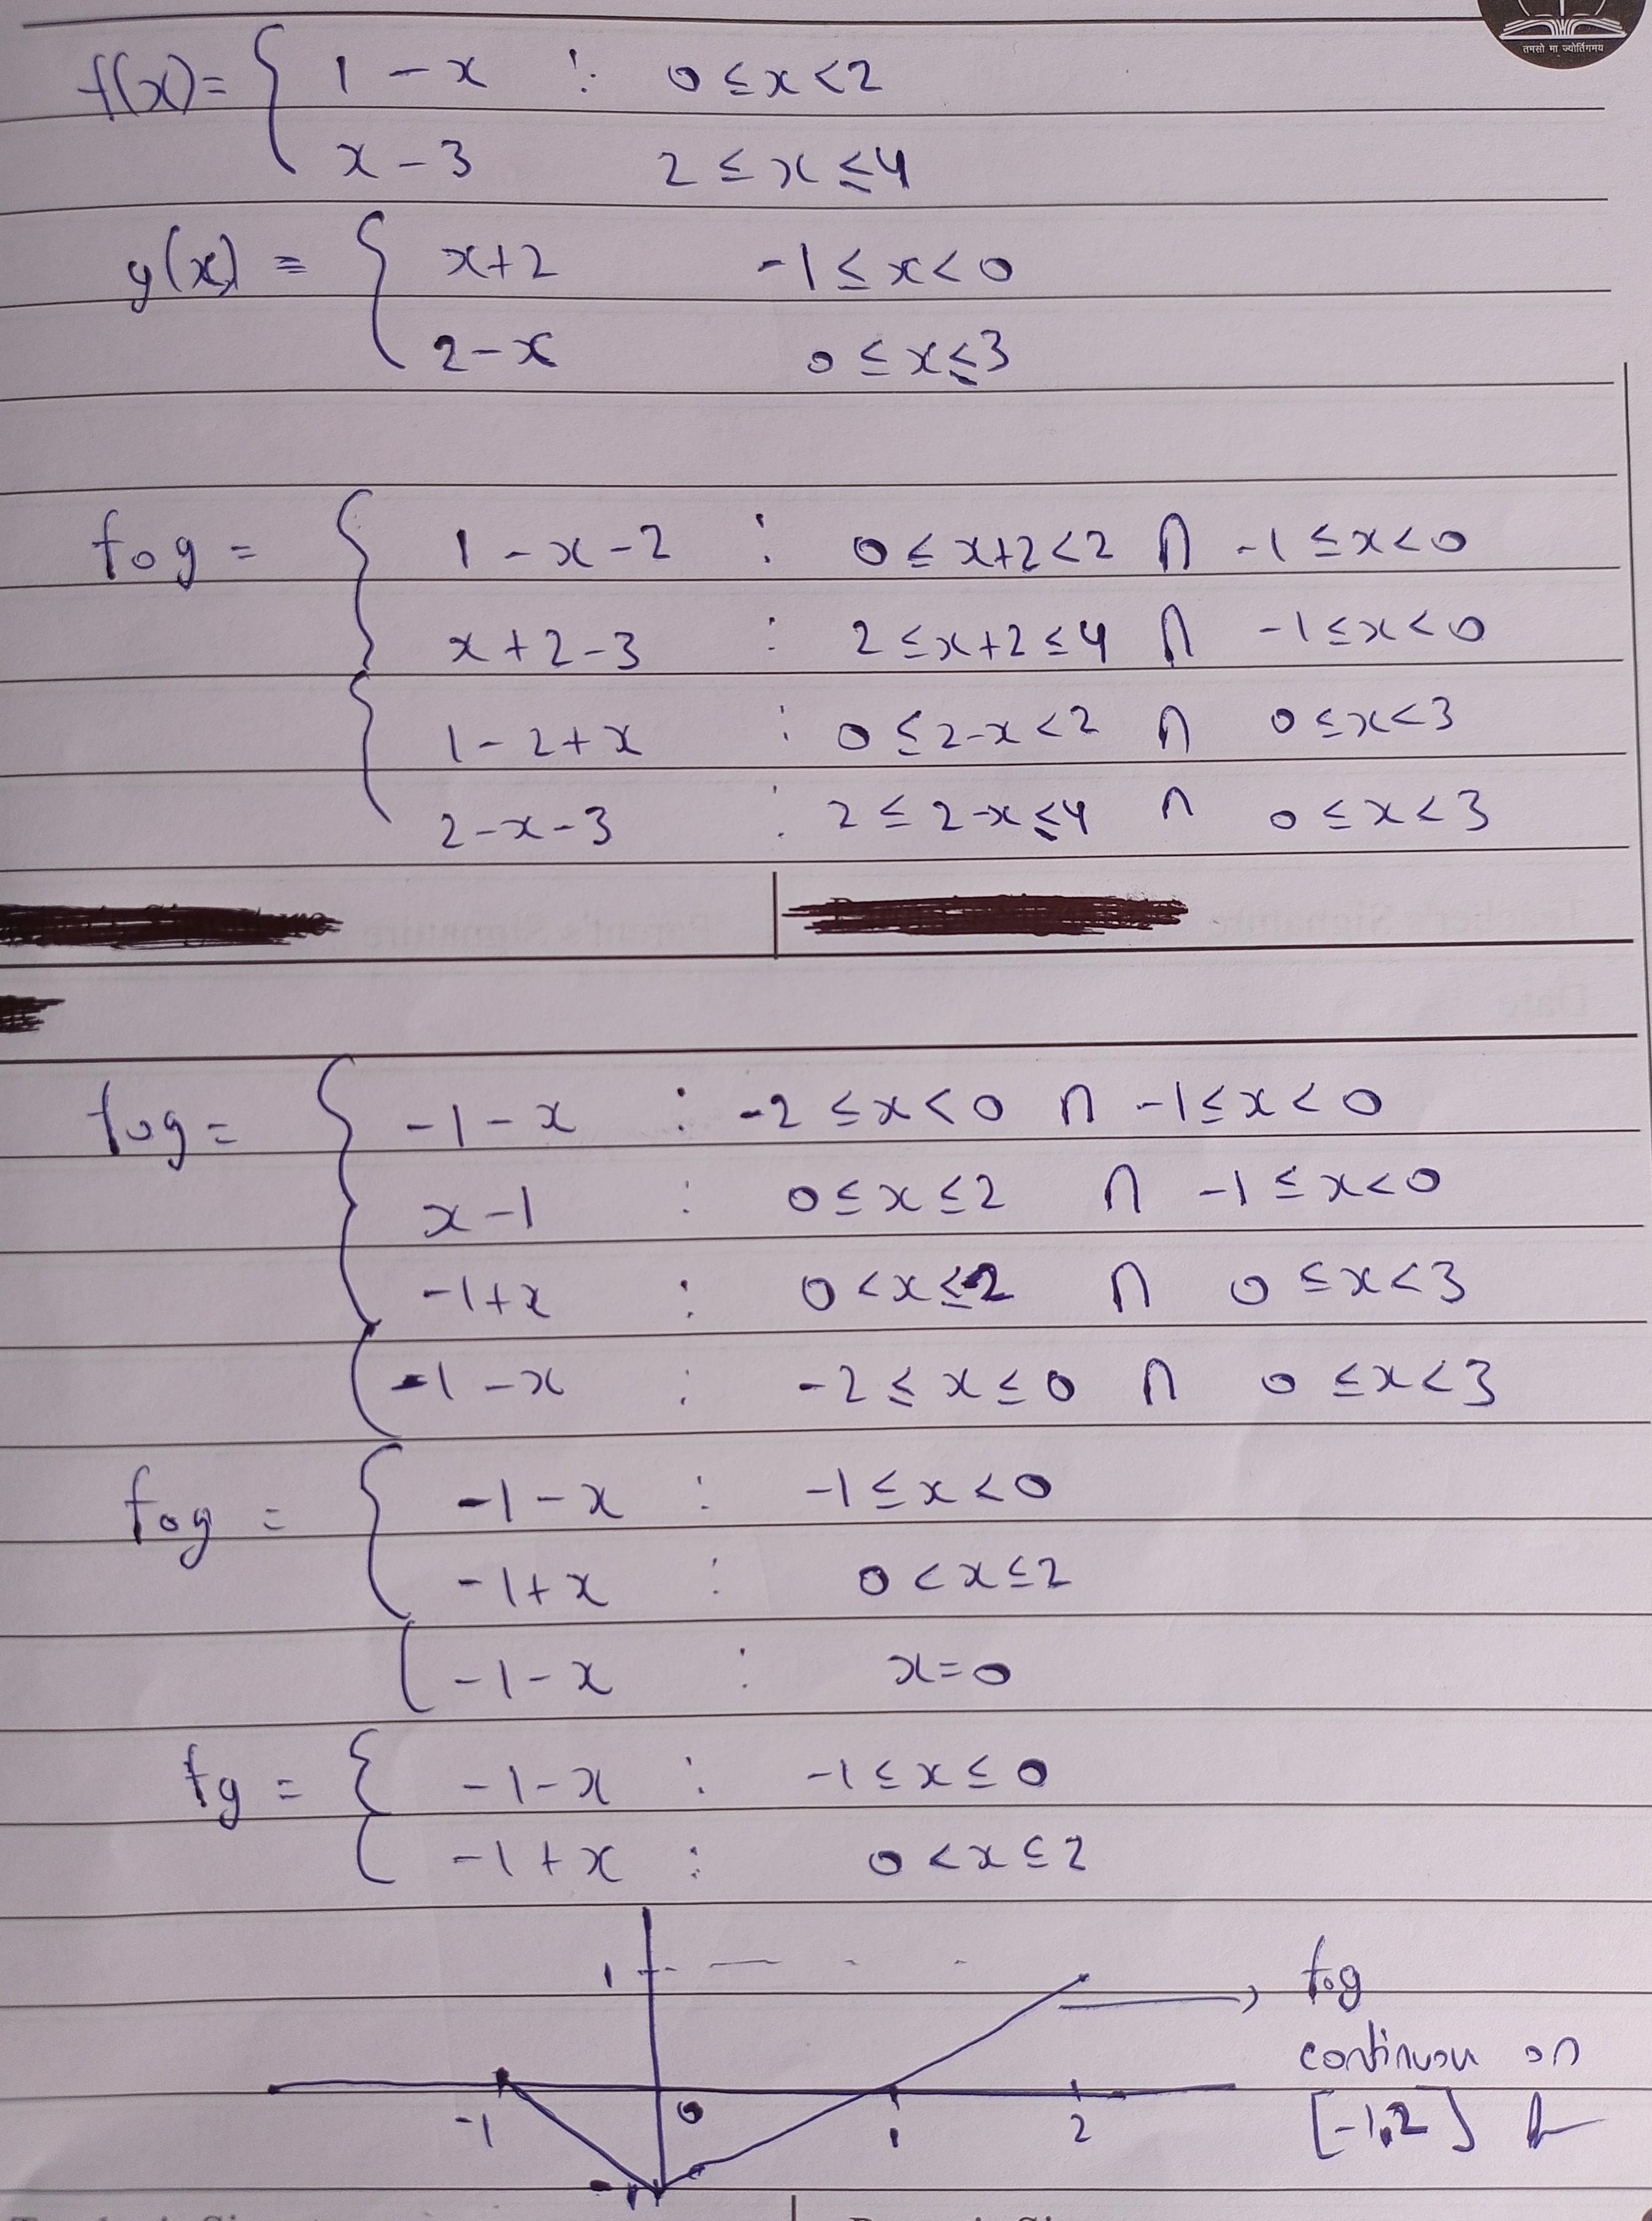 तमसो मा ज्योतिंगमय
f(x) = { 1 - x : 0 ≤ x < 2
x - 3 2 ≤ x ≤ 4
g(x) = { x+2 -1 ≤ x < 0
2-x 0 ≤ x ≤ 3
fog = { 1 - x - 2 : 0 ≤ x+2 < 2 ∩ -1 ≤ x < 0
x + 2 - 3 : 2 ≤ x+2 ≤ 4 ∩ -1 ≤ x < 0
1 - 2 + x : 0 ≤ 2-x < 2 ∩ 0 ≤ x < 3
2 - x - 3 : 2 ≤ 2-x ≤ 4 ∩ 0 ≤ x < 3
fog = { -1 - x : -2 ≤ x < 0 ∩ -1 ≤ x < 0
x - 1 : 0 ≤ x ≤ 2 ∩ -1 ≤ x < 0
-1 + x : 0 < x ≤ 2 ∩ 0 ≤ x < 3
-1 - x : -2 ≤ x ≤ 0 ∩ 0 ≤ x < 3
fog = { -1 - x : -1 ≤ x < 0
-1 + x : 0 < x ≤ 2
-1 - x : x = 0
fg = { -1 - x : -1 ≤ x ≤ 0
-1 + x : 0 < x ≤ 2
1 fog
continuou on
-1 0 1 2 [-1,2]
-1